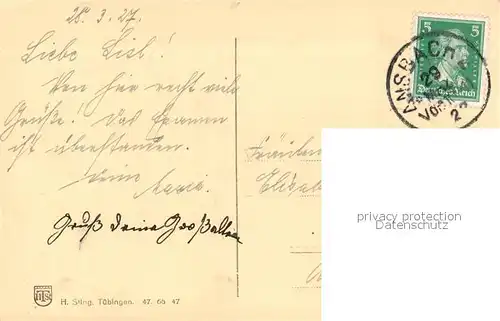 28. 3. 27.
Liebe Lisl!
Von hier recht viele
Grüße! Das Examen
ist überstanden.
Deine
Gruß Deine
5 5
Deutsches Reich
ANSBACH
29
Fräulein
privacy protection
Datenschutz
H. Sting, Tübingen. 47. 66 47